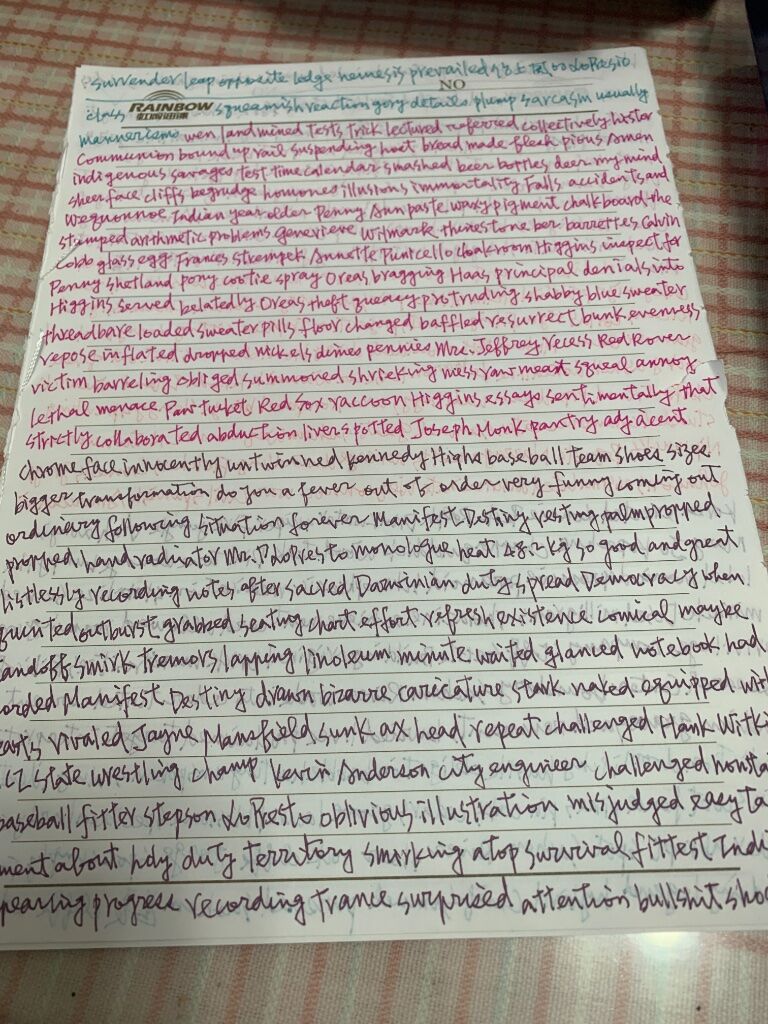 surrender leap opposite lodge nemesis prevailed 占上風 LoPresto
NO
class RAINBOW squeamish reaction gory details plump sarcasm usually
mannerisms wen landmined tests trick lectured referred collectively
Communion bound up rail suspending host bread made flesh pious Amen
indigenous savages test time calendar smashed beer bottles deer my mind
sheer face cliffs begrudge homones illusions immortality Falls accidents and
Wequonnoc Indian year older Penny Ann paste waxy pigment chalkboard the
stumped arithmetic problems Genevieve Wilmark rhinestone bar barrettes Calvin
Cobb glass egg Frances Strempek Annette Punicello cloakroom Higgins inspect for
Penny Shetland pony cootie spray Oreos bragging Haas principal denials into
Higgins served belatedly Oreas theft queasy protruding shabby blue sweater
threadbare loaded sweater pills floor changed baffled resurrect bunk evenness
repose inflated dropped nickels dimes pennies Mrs. Jeffrey recess Red Rover
victim barreling obliged summoned shrieking mess raw meat squeal annoy
lethal menace Pawtucket Red Sox raccoon Higgins essays sentimentally that
strictly collaborated abduction liver spotted Joseph Monk pantry adjacent
chrome face innocently untwinned Kennedy Highs baseball team shoe sizes
bigger transformation do you a fever out of order very funny coming out
ordinary following situation forever Manifest Destiny resting palm propped
propped hand radiator Mr. LoPresto monologue heat 48.2 kg so good and great
listlessly recording notes after sacred Darwinian duty spread Democracy when
outburst grabbed seating chart effort refresh existence comical maybe
andoff smirk tremors lapping linoleum minute waited glanced notebook had
orded Manifest Destiny drawn bizarre caricature stark naked equipped with
easts rivaled Jayne Mansfield sunk ax head repeat challenged Hank Witki
State wrestling champ Kevin Anderson city engineer challenged
baseball fitter stepson LoPresto oblivious illustration misjudged easy ta
ment about holy duty Territory smirking atop survival fittest Indi
pearing progress recording trance surprised attention bullshit sho